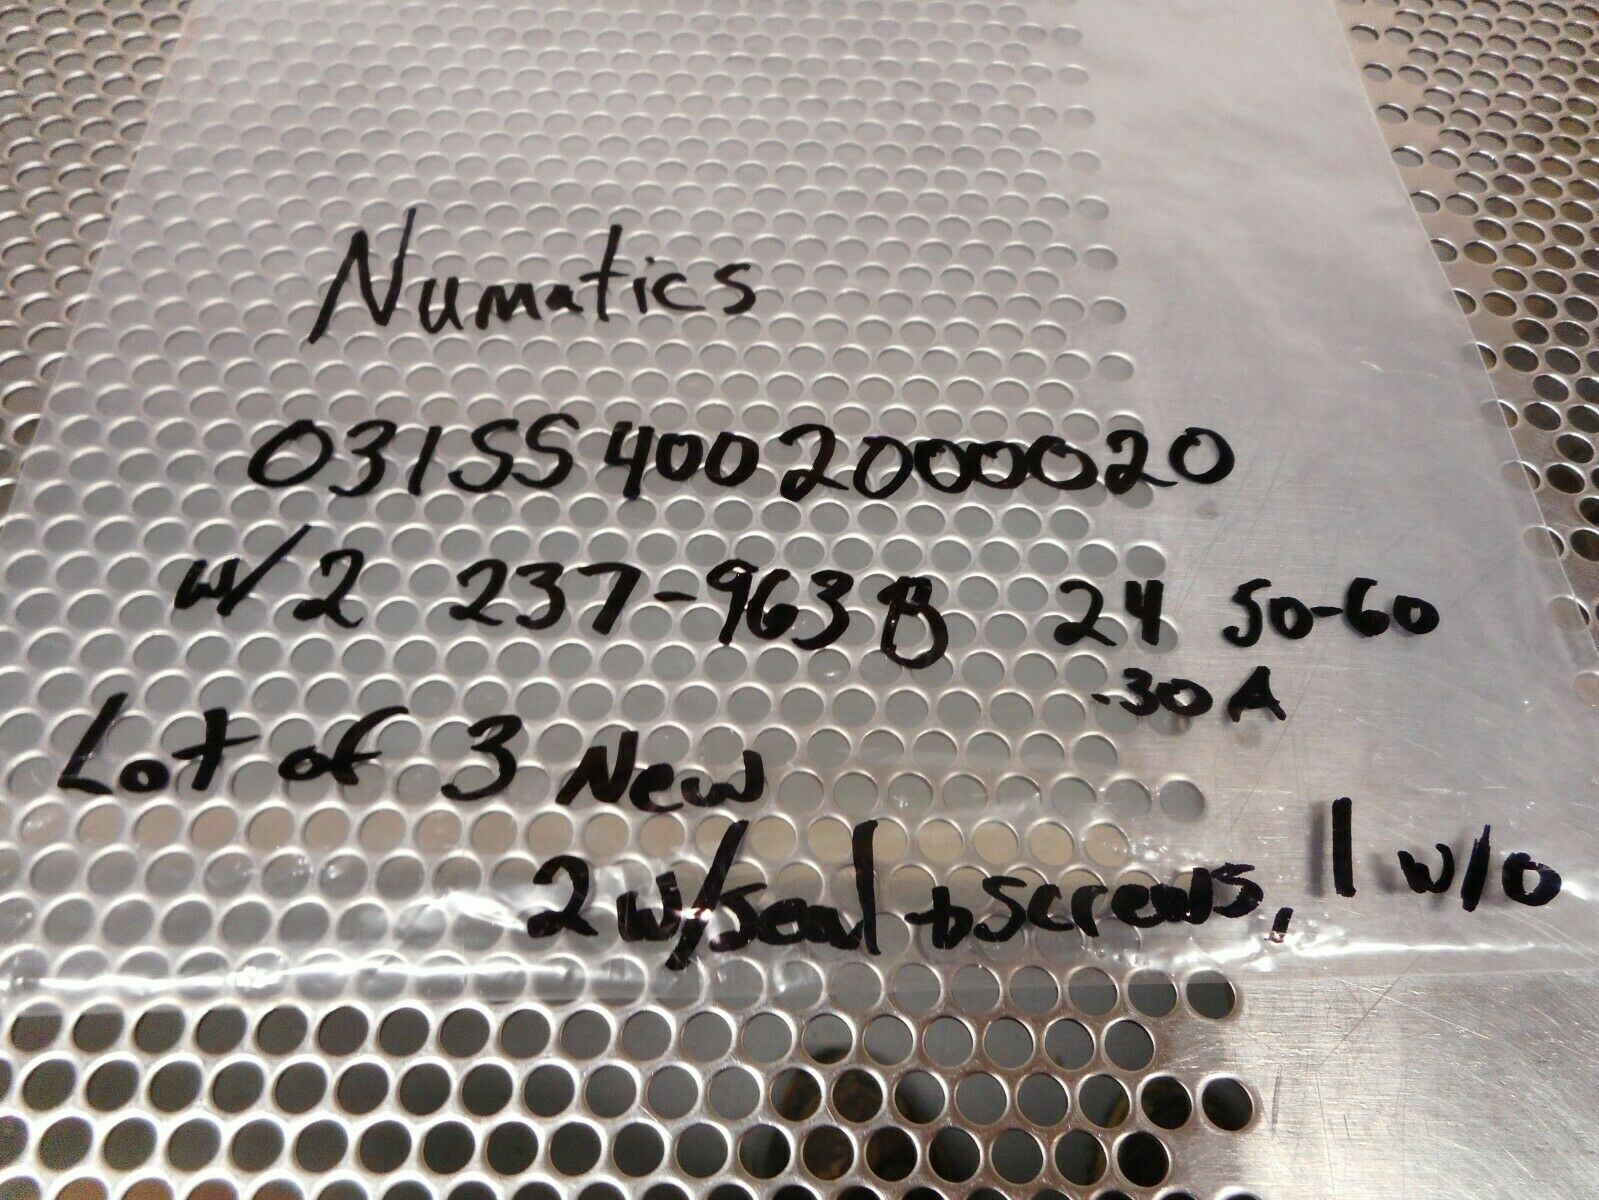 Numatics
031SS4002000020
w/2 237-963B 24 50-60
.30A
Lot of 3 New
2 w/seal + screws, 1 w/o